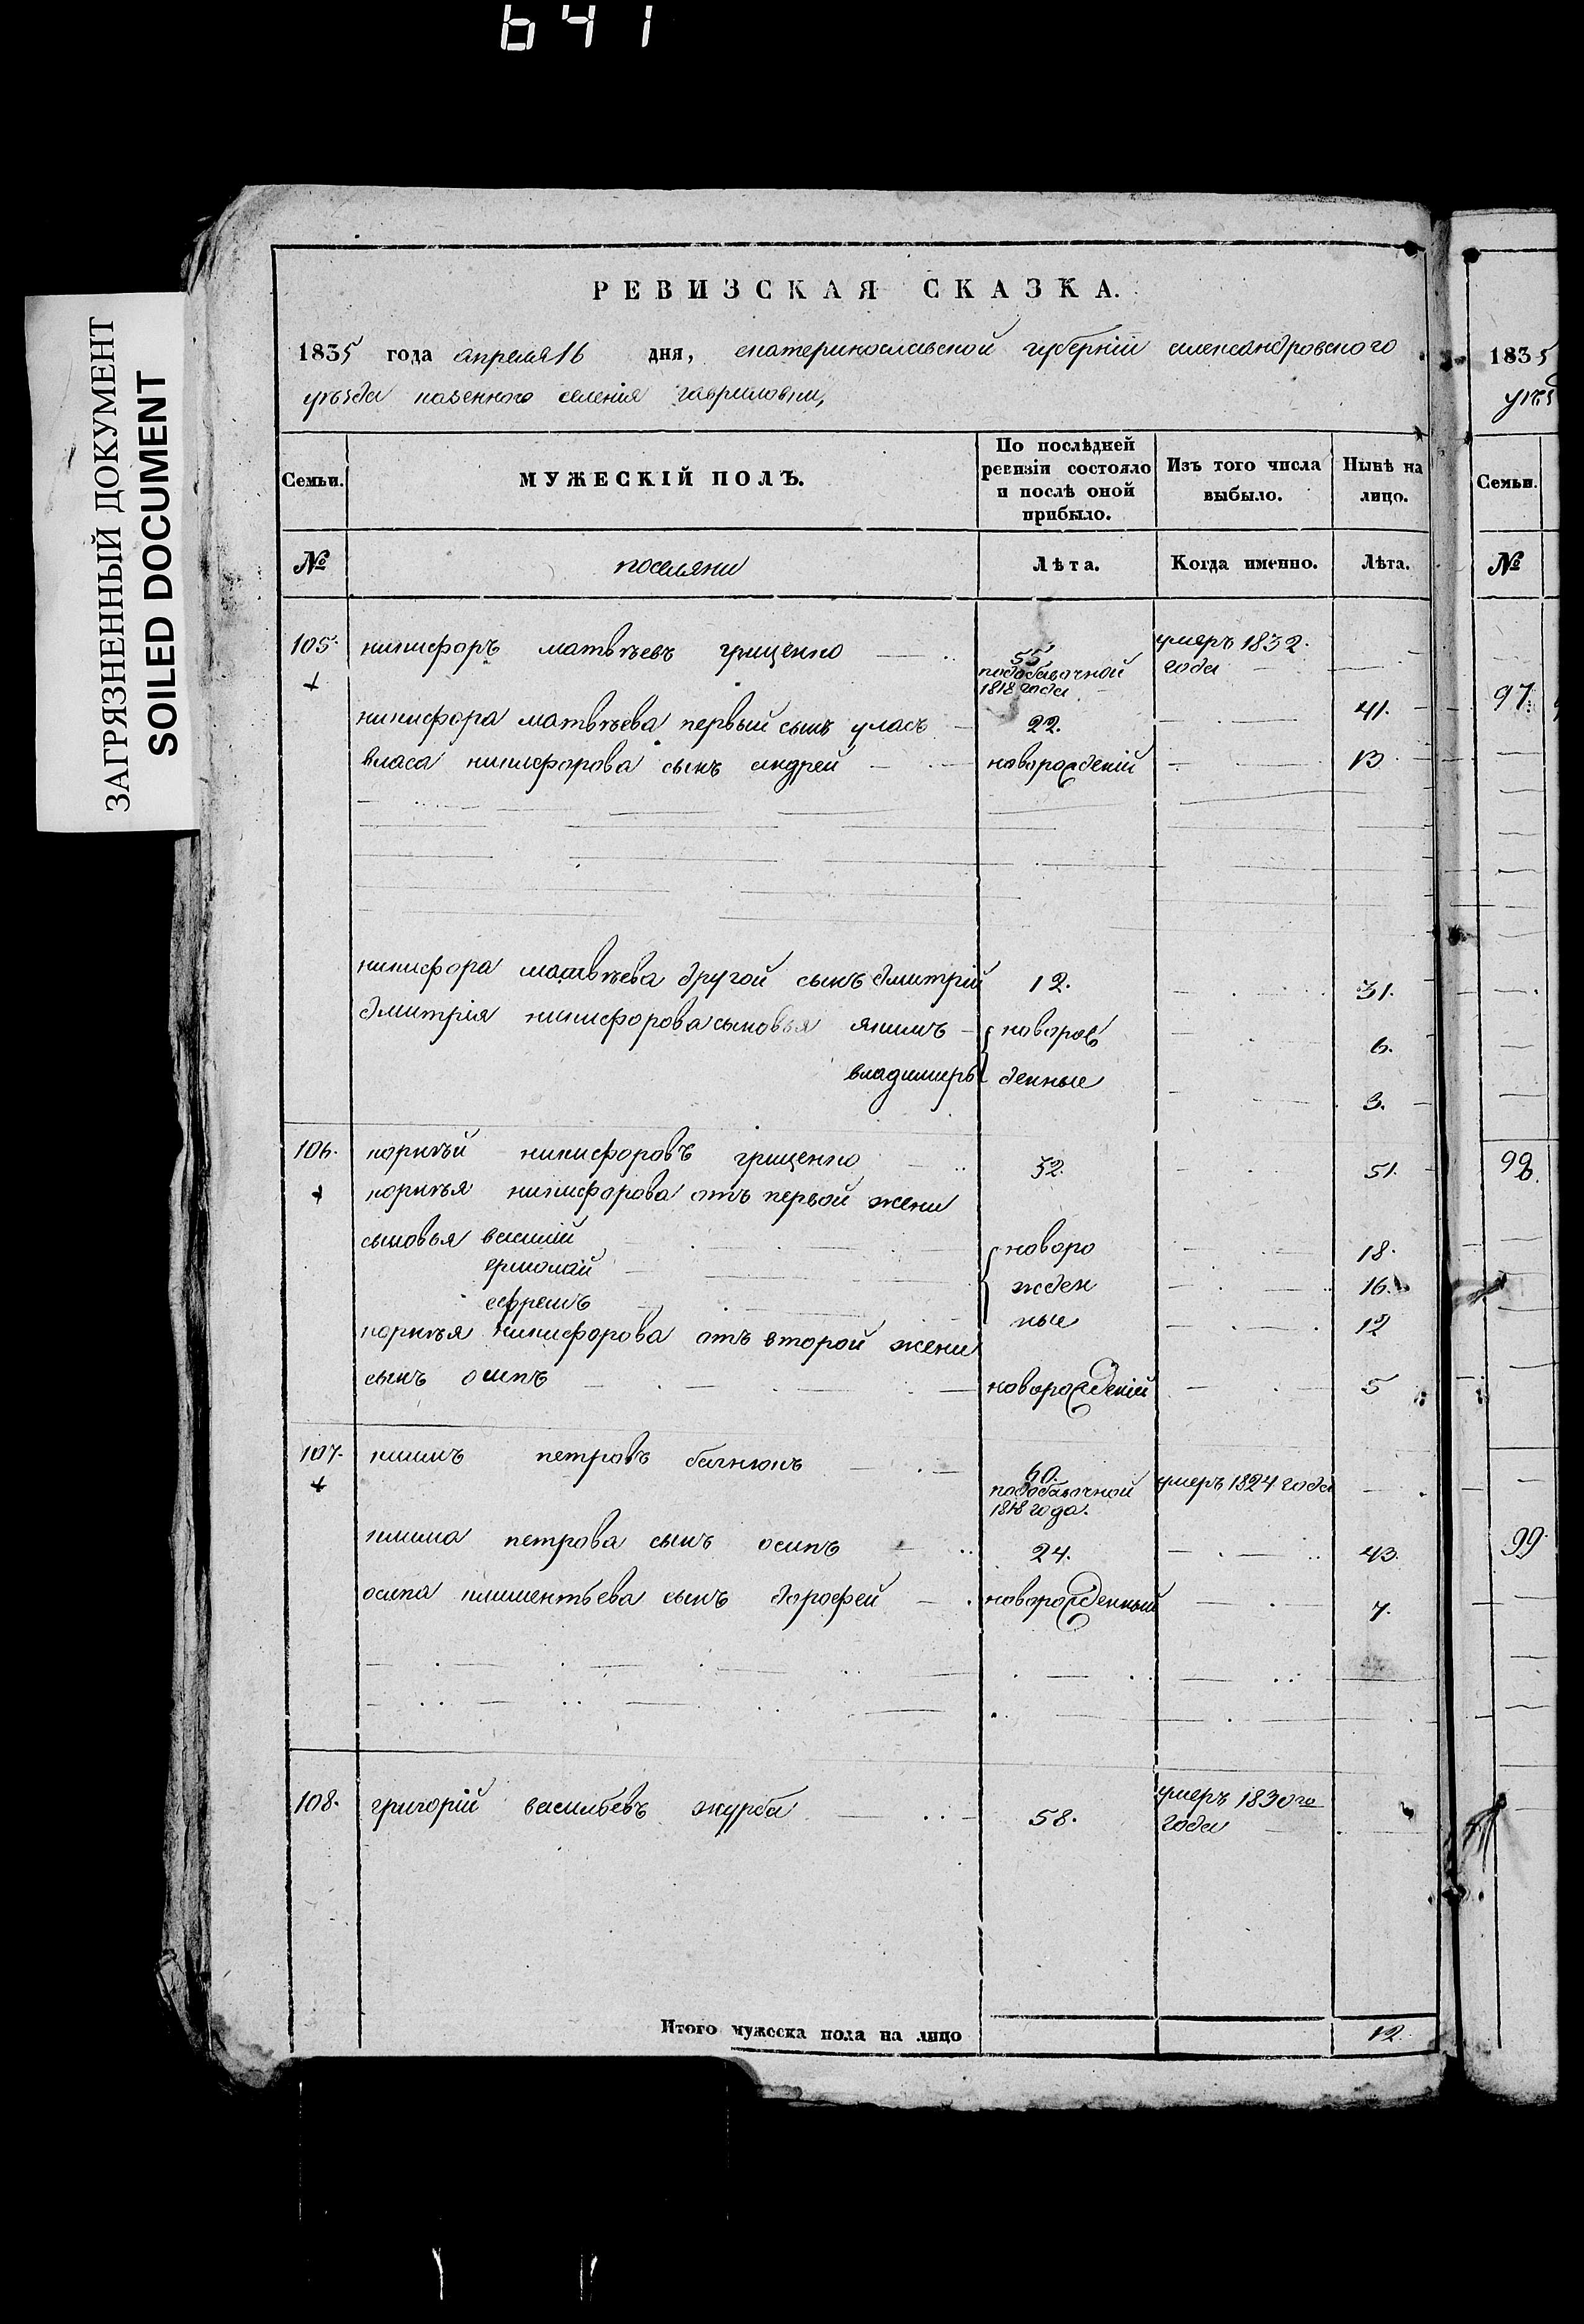 641
ЗАГРЯЗНЕННЫЙ ДОКУМЕНТ
SOILED DOCUMENT
РЕВИЗСКАЯ СКАЗКА.
1835 года апреля 16 дня, екатеринославской губерніи александровского
уѣзда казенного селенія гавриловки,
Семьи. МУЖЕСКІЙ ПОЛЪ. По послѣдней ревизіи состояло и послѣ оной прибыло. Изъ того числа выбыло. Нынѣ на лицо.
№ поселяни Лѣта. Когда именно. Лѣта.
105. никифоръ матвѣевъ гриценко 55 подобавочной 1818 года умеръ 1832. года
никифора матвѣева первый сынъ уласъ 22. 41.
власа никифорова сынъ андрей новорожденій 13
никифора матвѣева другой сынъ дмитрій 12. 31.
дмитрія никифорова сыновья якимъ новорож 6.
владимиръ денные 3.
106. корнѣй никифоровъ гриценко 32. 51.
корнѣя никифорова отъ первой жени
сыновья василій новоро 18.
ермолай жден 16.
ефремъ ные 12
корнѣя никифорова отъ второй жени
сынъ осипъ новорожденій 5
107. климъ петровъ 60. подобавочной 1818 года. умеръ 1824 года
клима петрова сынъ осипъ 24. 43.
осипа климентьева сынъ дорофей новорожденный 7.
108. григорій васильевъ журба 58. умеръ 1830го года
Итого мужеска пола на лицо 12.
1835
уѣз
Семьи.
№
97.
98.
99.